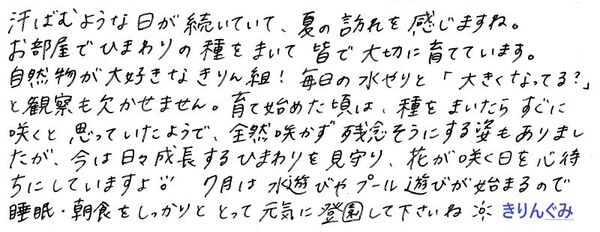 汗ばむような日が続いていて、夏の訪れを感じますね。
お部屋でひまわりの種をまいて皆で大切に育てています。
自然物が大好きなきりん組！毎日の水やりと「大きくなってる？」
と観察も欠かせません。育て始めた頃は、種をまいたらすぐに
咲くと思っていたようで、全然咲かず残念そうにする姿もありまし
たが、今は日々成長するひまわりを見守り、花が咲く日を心待
ちにしていますよ 7月は水遊びやプール遊びが始まるので
睡眠・朝食をしっかりととって元気に登園して下さいね きりんぐみ